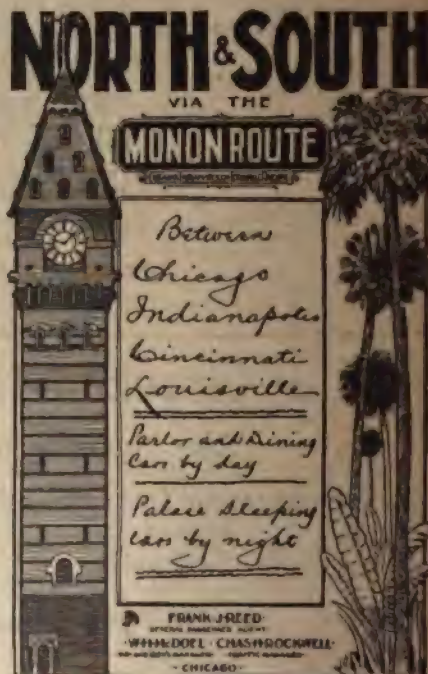 NORTH & SOUTH
VIA THE
MONON ROUTE
Between
Chicago
Indianapolis
Cincinnati
Louisville
Parlor and Dining
Cars by day
Palace Sleeping
Cars by night
FRANK J. REED
GENERAL PASSENGER AGENT
W.H. McDOEL · CHAS. H. ROCKWELL
TRAFFIC MANAGER
· CHICAGO ·